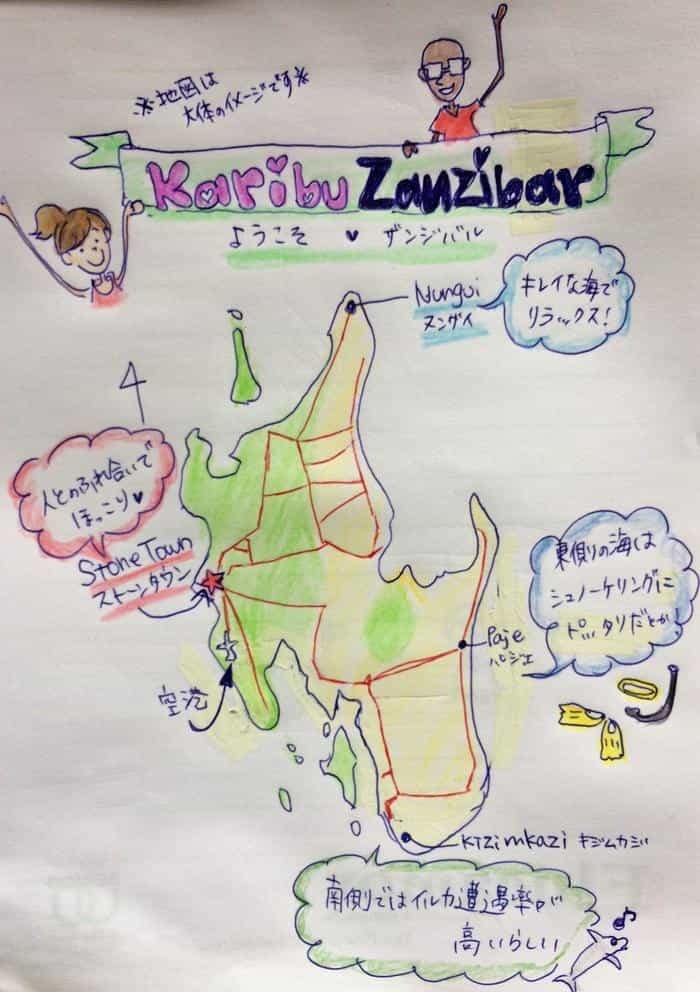 ※地図は
大体のイメージです※
Karibu Zanzibar
ようこそ ♥ ザンジバル
Nungui
ヌングイ
キレイな海で
リラックス!
人とのふれ合いで
ほっこり♥
Stone Town
ストーンタウン
東側の海は
シュノーケリングに
ピッタリだとか
Paje
パジェ
空港
Kizimkazi キジムカジ
南側ではイルカ遭遇率が
高いらしい